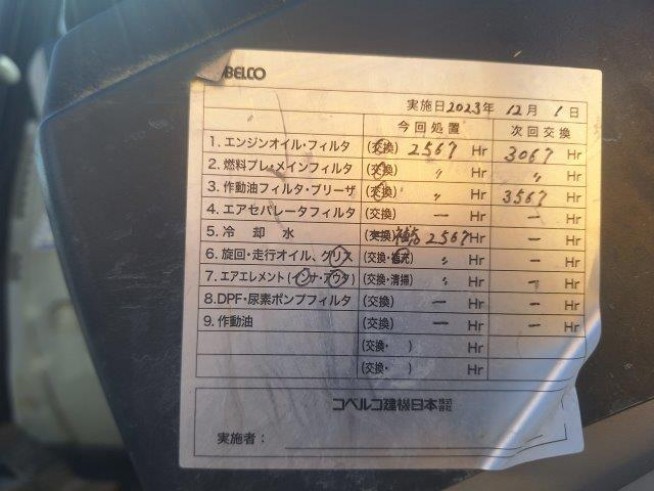 BELCO
実施日2023年 12月 1日
今回処置 次回交換
1. エンジンオイル・フィルタ (交換) 2567 Hr 3067 Hr
2. 燃料プレ・メインフィルタ (交換) 〃 Hr 〃 Hr
3. 作動油フィルタ・ブリーザ (交換) 〃 Hr 3567 Hr
4. エアセパレータフィルタ (交換) ー Hr ー Hr
5. 冷却水 (交換) 2567 Hr ー Hr
6. 旋回・走行オイル、グリス (交換・補充) 〃 Hr ー Hr
7. エアエレメント (インナ・アウタ) (交換・清掃) 〃 Hr ー Hr
8. DPF・尿素ポンプフィルタ (交換) ー Hr ー Hr
9. 作動油 (交換) ー Hr ー Hr
(交換・ ) Hr Hr
(交換・ ) Hr Hr
コベルコ建機日本株式会社
実施者：